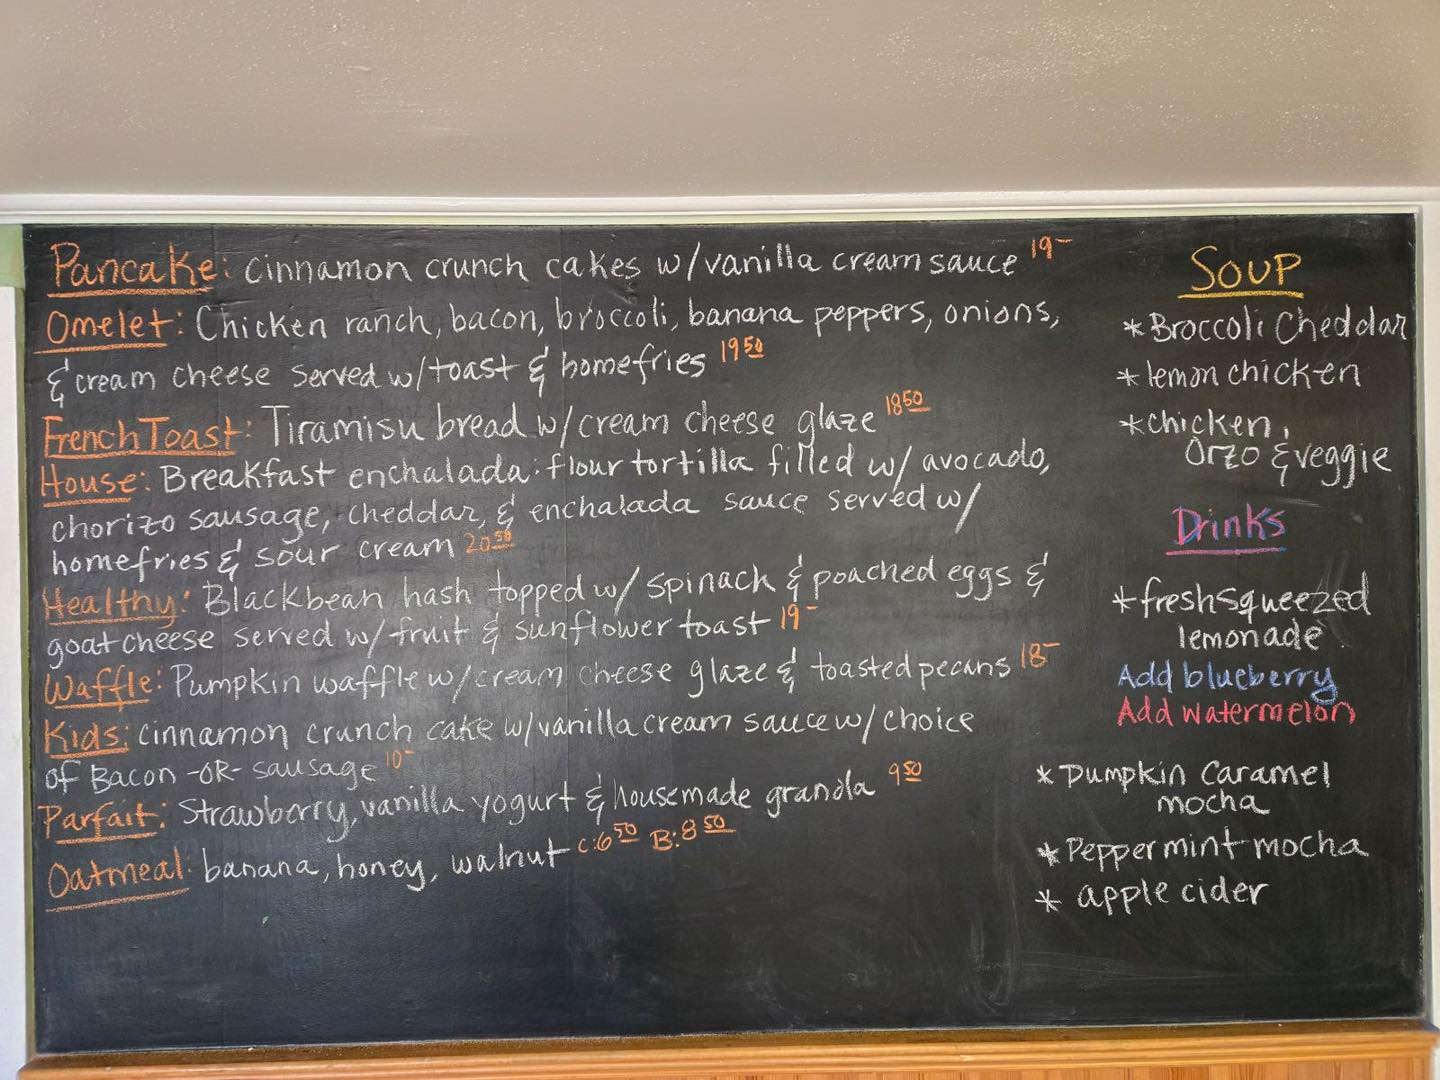 Pancake: cinnamon crunch cakes w/vanilla cream sauce 19-
Omelet: Chicken ranch, bacon, broccoli, banana peppers, onions,
& cream cheese served w/toast & homefries 19 50
French Toast: Tiramisu bread w/cream cheese glaze 18 50
House: Breakfast enchalada: flour tortilla filled w/ avocado,
chorizo sausage, cheddar, & enchalada sauce served w/
homefries & sour cream 20 50
Healthy: Blackbean hash topped w/ spinach & poached eggs &
goat cheese served w/ fruit & sunflower toast 19-
Waffle: Pumpkin waffle w/cream cheese glaze & toasted pecans 18-
Kids: cinnamon crunch cake w/vanilla cream sauce w/ choice
of Bacon -OR- sausage 10-
Parfait: Strawberry, vanilla yogurt & housemade granola 9 50
Oatmeal: banana, honey, walnut C:6 50 B:8 50
Soup
*Broccoli Cheddar
*lemon chicken
*chicken,
Orzo & veggie
Drinks
*fresh squeezed
lemonade
Add blueberry
Add watermelon
*Pumpkin Caramel
mocha
*Peppermint mocha
*apple cider